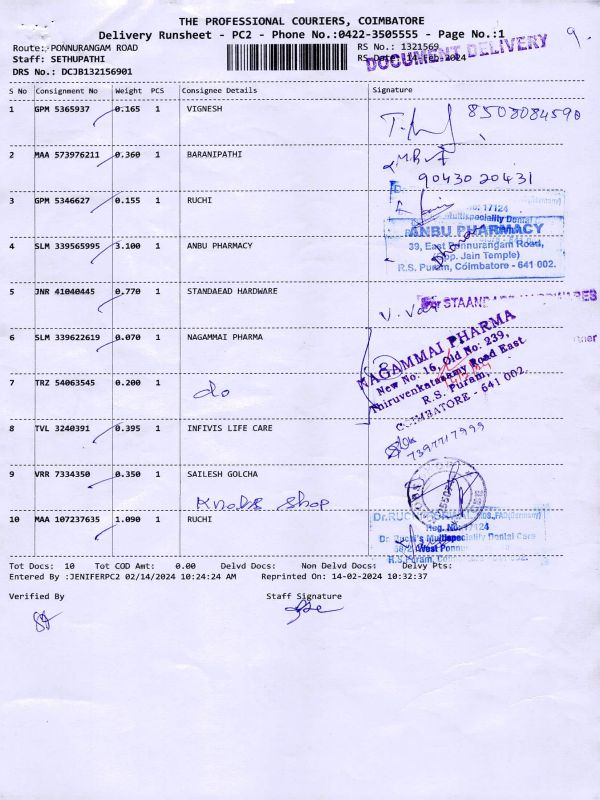 THE PROFESSIONAL COURIERS, COIMBATORE
Delivery Runsheet - PC2 - Phone No.:0422-3505555 - Page No.:1
Route: PONNURANGAM ROAD
Staff: SETHUPATHI
DRS No.: DCJB132156901
RS No.: 1321569
RS Date: 14-Feb-2024
DOCUMENT DELIVERY
9.
S No Consignment No Weight PCS Consignee Details Signature
1 GPM 5365937 0.165 1 VIGNESH
8508084590
2 MAA 573976211 0.360 1 BARANIPATHI
90430 20431
3 GPM 5346627 0.155 1 RUCHI
No: 17124
Multispeciality Dental
4 SLM 339565995 3.100 1 ANBU PHARMACY
ANBU PHARMACY
39, East Ponnurangam Road,
(Opp. Jain Temple)
R.S. Puram, Coimbatore - 641 002.
5 JNR 41040445 0.770 1 STANDAEAD HARDWARE
For STAANDARD HARDWARES
6 SLM 339622619 0.070 1 NAGAMMAI PHARMA
NAGAMMAI PHARMA
New No: 16, Old No: 239,
Thiruvenkatasamy Road East
R.S. Puram,
COIMBATORE - 641 002.
7 TRZ 54063545 0.200 1
do
8 TVL 3240391 0.395 1 INFIVIS LIFE CARE
7397717999
9 VRR 7334350 0.350 1 SAILESH GOLCHA
Knobs shop
10 MAA 107237635 1.090 1 RUCHI
Reg. No: 17124
Dr. Ruchi's Multispeciality Dental Care
West Ponnu
R.S. Puram, Coimbatore
Tot Docs: 10 Tot COD Amt: 0.00 Delvd Docs: Non Delvd Docs: Delvy Pts:
Entered By :JENIFERPC2 02/14/2024 10:24:24 AM Reprinted On: 14-02-2024 10:32:37
Verified By Staff Signature